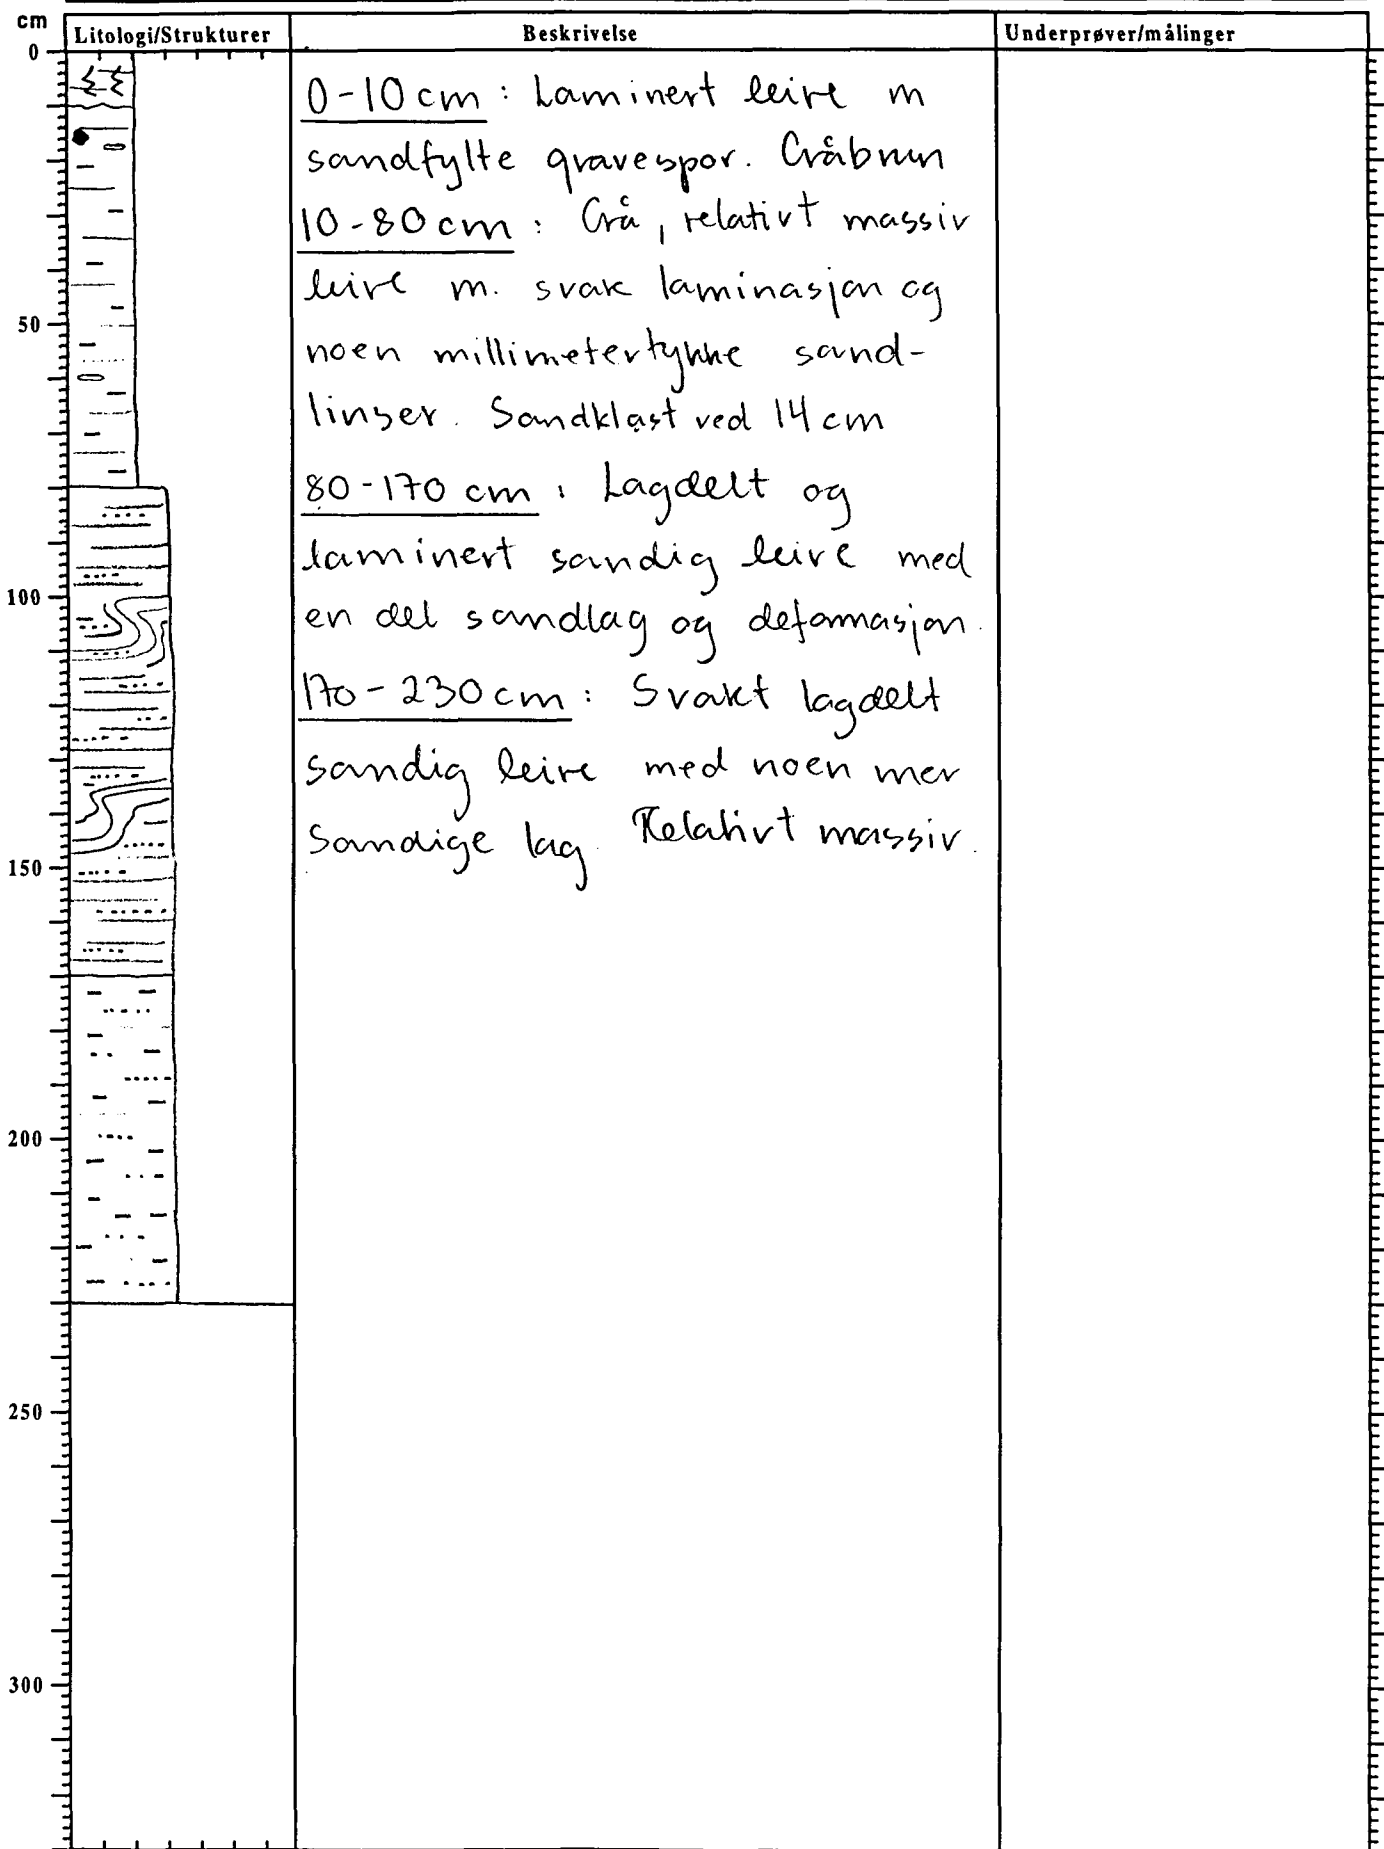 cm
Litologi/Strukturer
Beskrivelse
Underprøver/målinger
0
0-10 cm : Laminert leire m
sandfylte gravespor. Gråbrun
10-80 cm : Grå, relativt massiv
leire m. svak laminasjon og
50
noen millimetertykke sand-
linser. Sandklast ved 14 cm
80-170 cm : Lagdelt og
laminert sandig leire med
100
en del sandlag og deformasjon.
170-230 cm : Svakt lagdelt
sandig leire med noen mer
sandige lag. Relativt massiv.
150
200
250
300